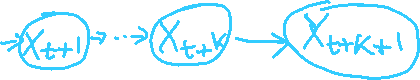 X_{t+1} X_{t+k} X_{t+k+1}